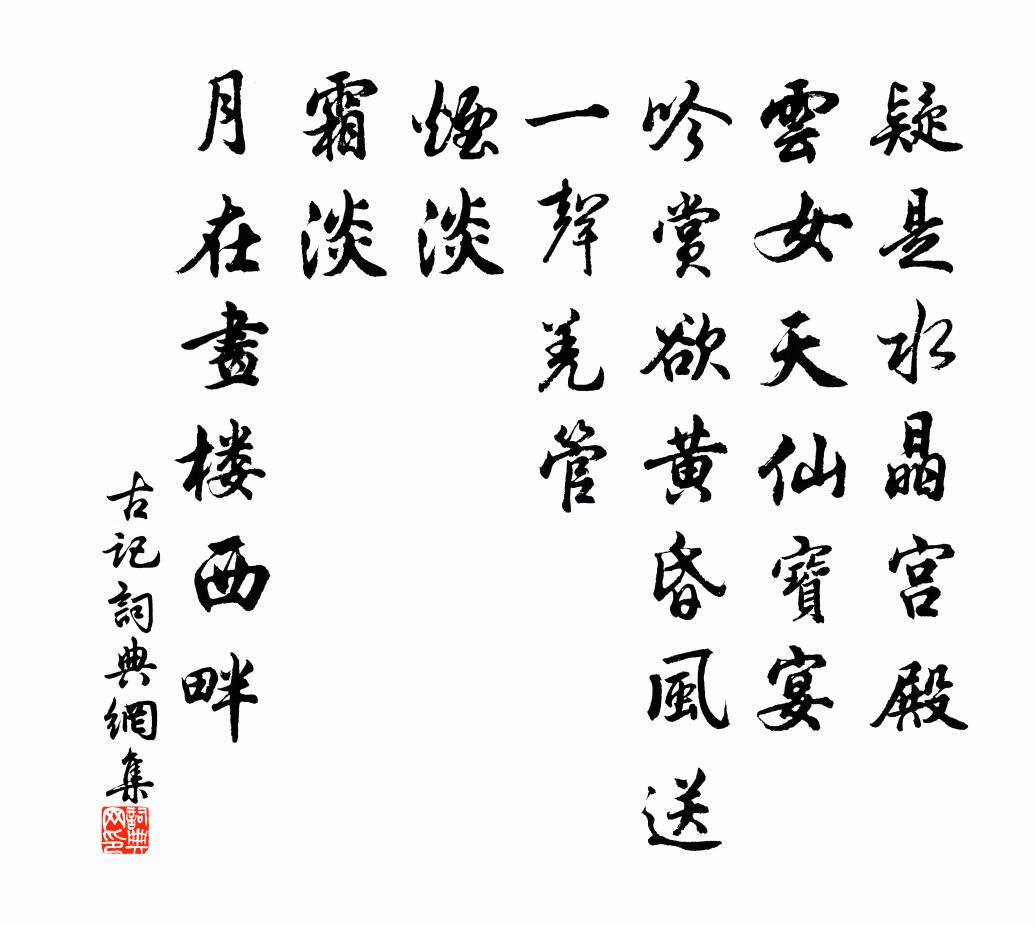 疑是水晶宮殿
雲女天仙寶宴
吟賞欲黄昏風送
一聲羌管
煙淡
霜淡
月在畫楼西畔
古記詞典網集
詞典
网印